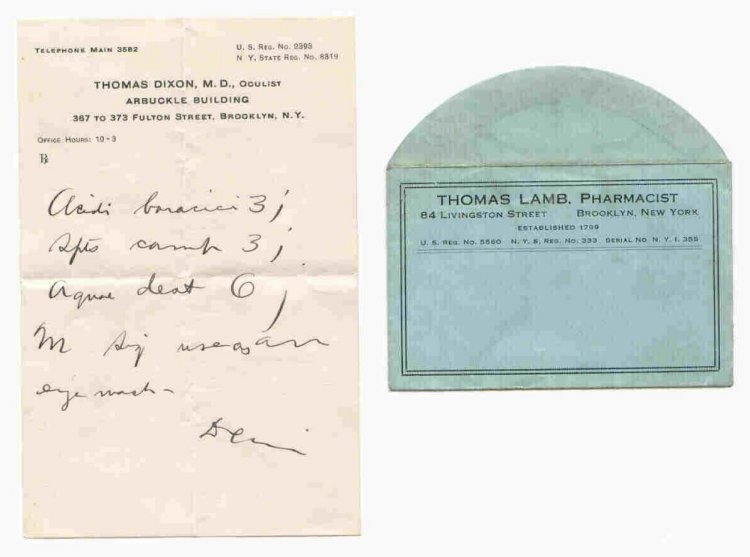 TELEPHONE MAIN 3582
U. S. REG. No. 2393
N Y. STATE REG. No. 8819
THOMAS DIXON, M. D., OCULIST
ARBUCKLE BUILDING
367 TO 373 FULTON STREET, BROOKLYN, N.Y.
OFFICE HOURS: 10-3
℞
Acidi boracici ʒj
Spts camph ʒj
Aquae dest
M Sig use as an
eye wash -
THOMAS LAMB, PHARMACIST
84 LIVINGSTON STREET BROOKLYN, NEW YORK
ESTABLISHED 1799
U. S. REG. No. 5560 N. Y. S. REG. No. 333 SERIAL No. N. Y. I. 355